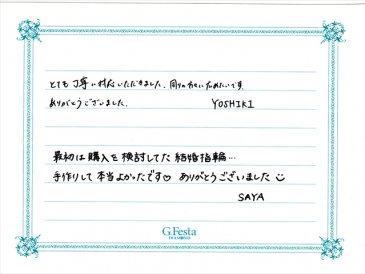 とても丁寧に対応いただきました。周りの方にいだめたいです。
ありがとうございました。 YOSHIKI
最初は購入を検討してた結婚指輪…
手作りして本当よかったです♡ ありがとうございました
SAYA
G.Festa
DIAMOND